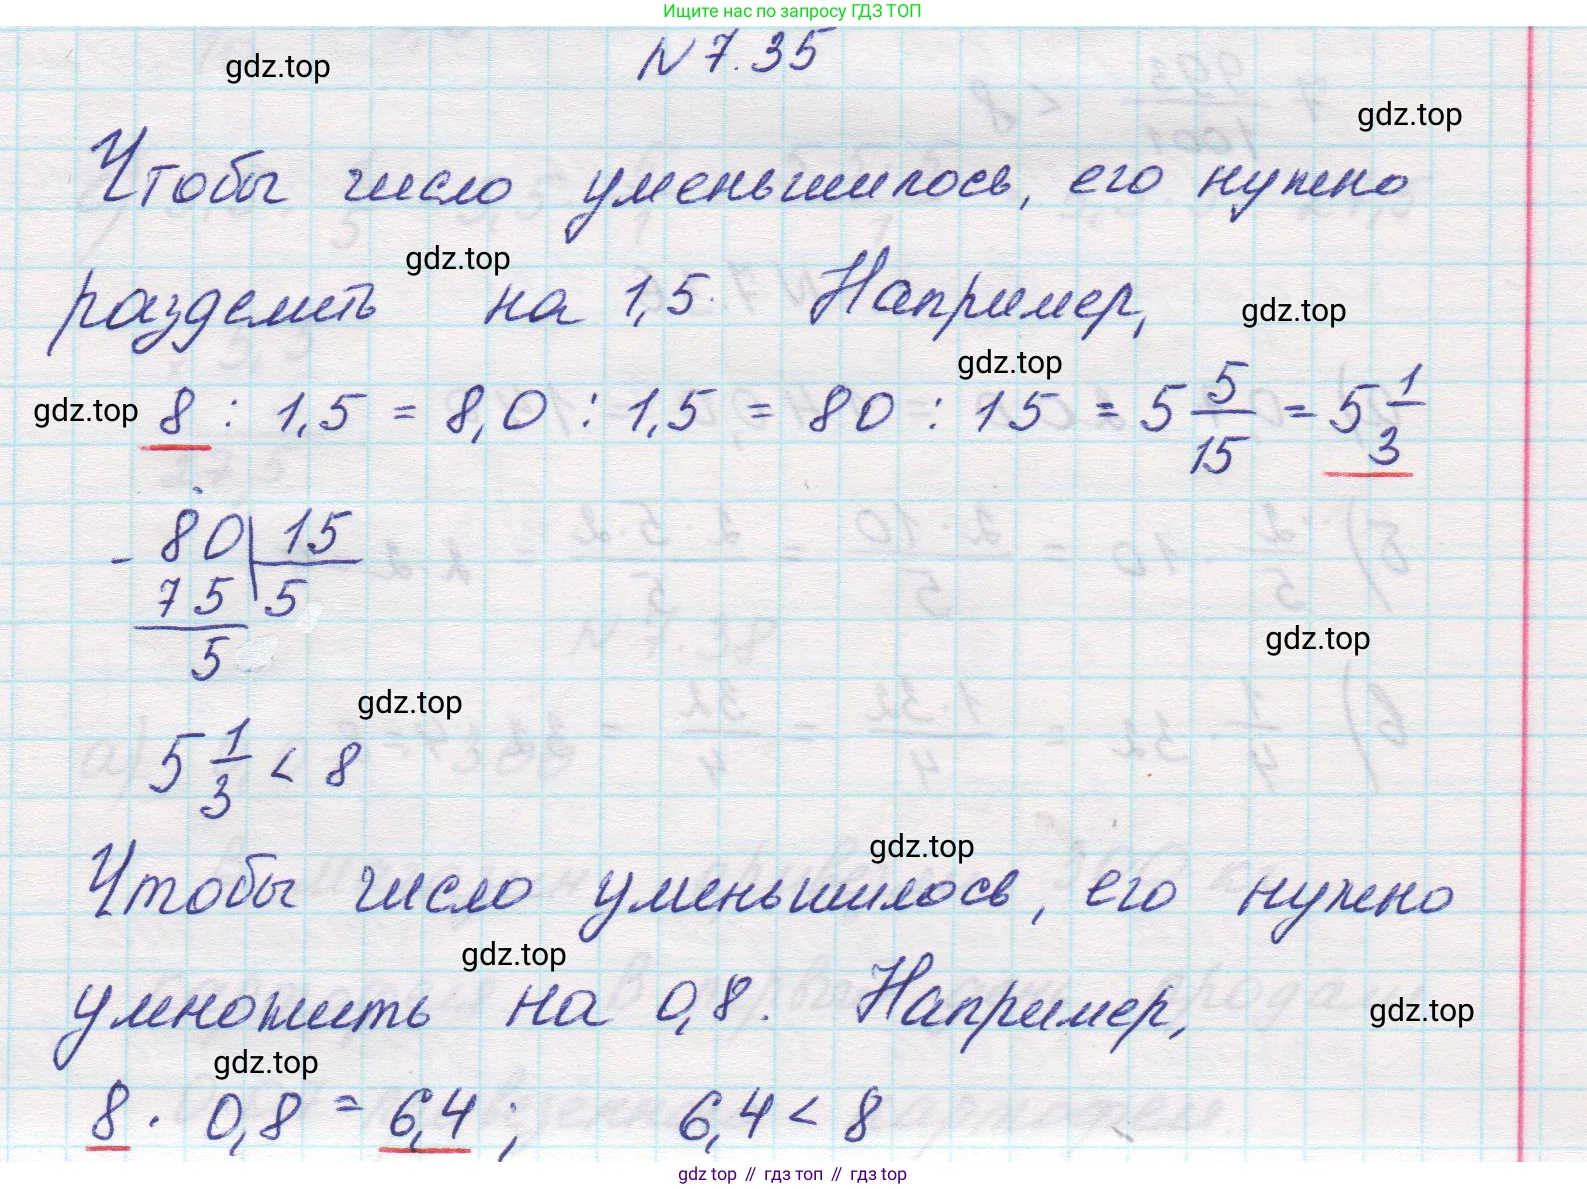 Ищите нас по запросу ГДЗ ТОП
N 7.35
gdz.top
gdz.top
Чтобы число уменьшилось, его нужно
gdz.top
разделить на 1,5. Например,
gdz.top
gdz.top
gdz.top
8 : 1,5 = 8,0 : 1,5 = 80 : 15 = 5 5/15 = 5 1/3
- 80 | 15
75 | 5
5
gdz.top
gdz.top
5 1/3 < 8
gdz.top
Чтобы число уменьшилось, его нужно
gdz.top
умножить на 0,8. Например,
gdz.top
gdz.top
8 · 0,8 = 6,4; 6,4 < 8
gdz top // гдз топ // gdz top